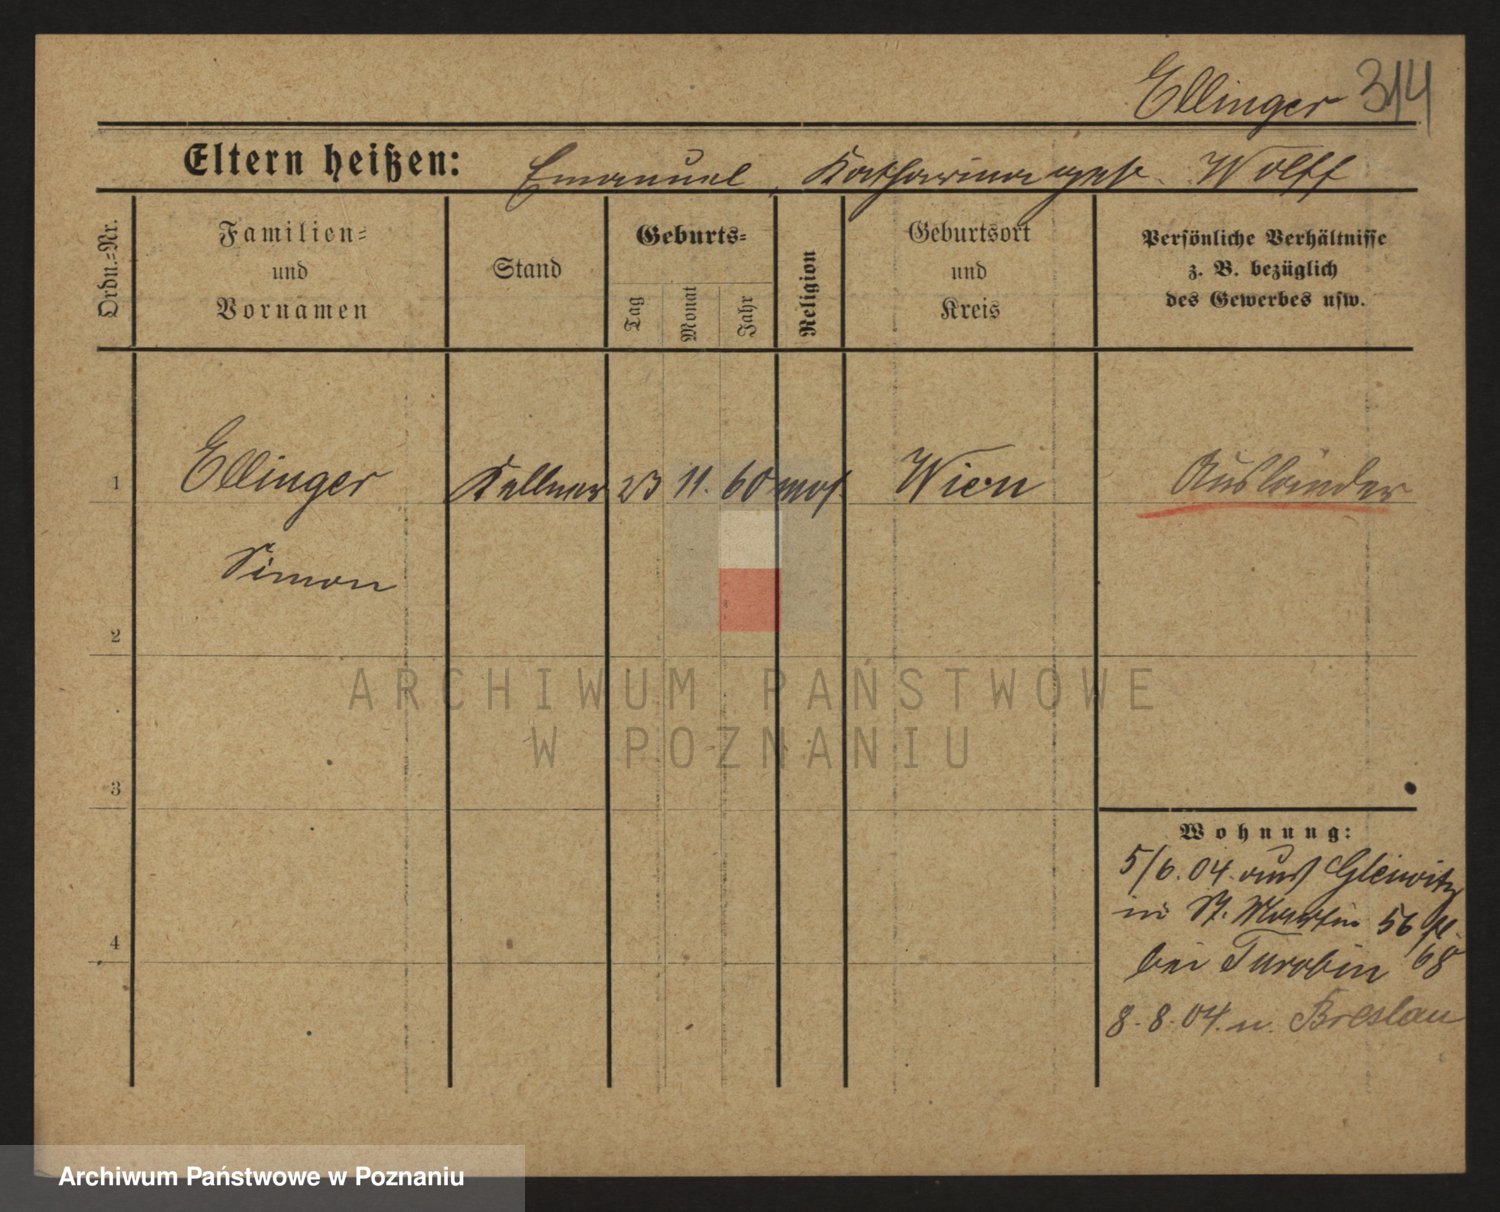 Ellinger 314
Eltern heißen: Emanuel, Katharina geb. Wolff
Ordn.-Nr.
Familien-
und
Vornamen
Stand
Geburts-
Tag
Monat
Jahr
Religion
Geburtsort
und
Kreis
Persönliche Verhältnisse
z. B. bezüglich
des Gewerbes usw.
1 Ellinger Kellner 23 11. 60 mos. Wien Ausländer
Simon
2
3
4
Wohnung:
5/6.04. aus Gleiwitz
in St. Martin 56
bei Turobin 68
8.8.04. n. Breslau
ARCHIWUM PAŃSTWOWE
W POZNANIU
Archiwum Państwowe w Poznaniu